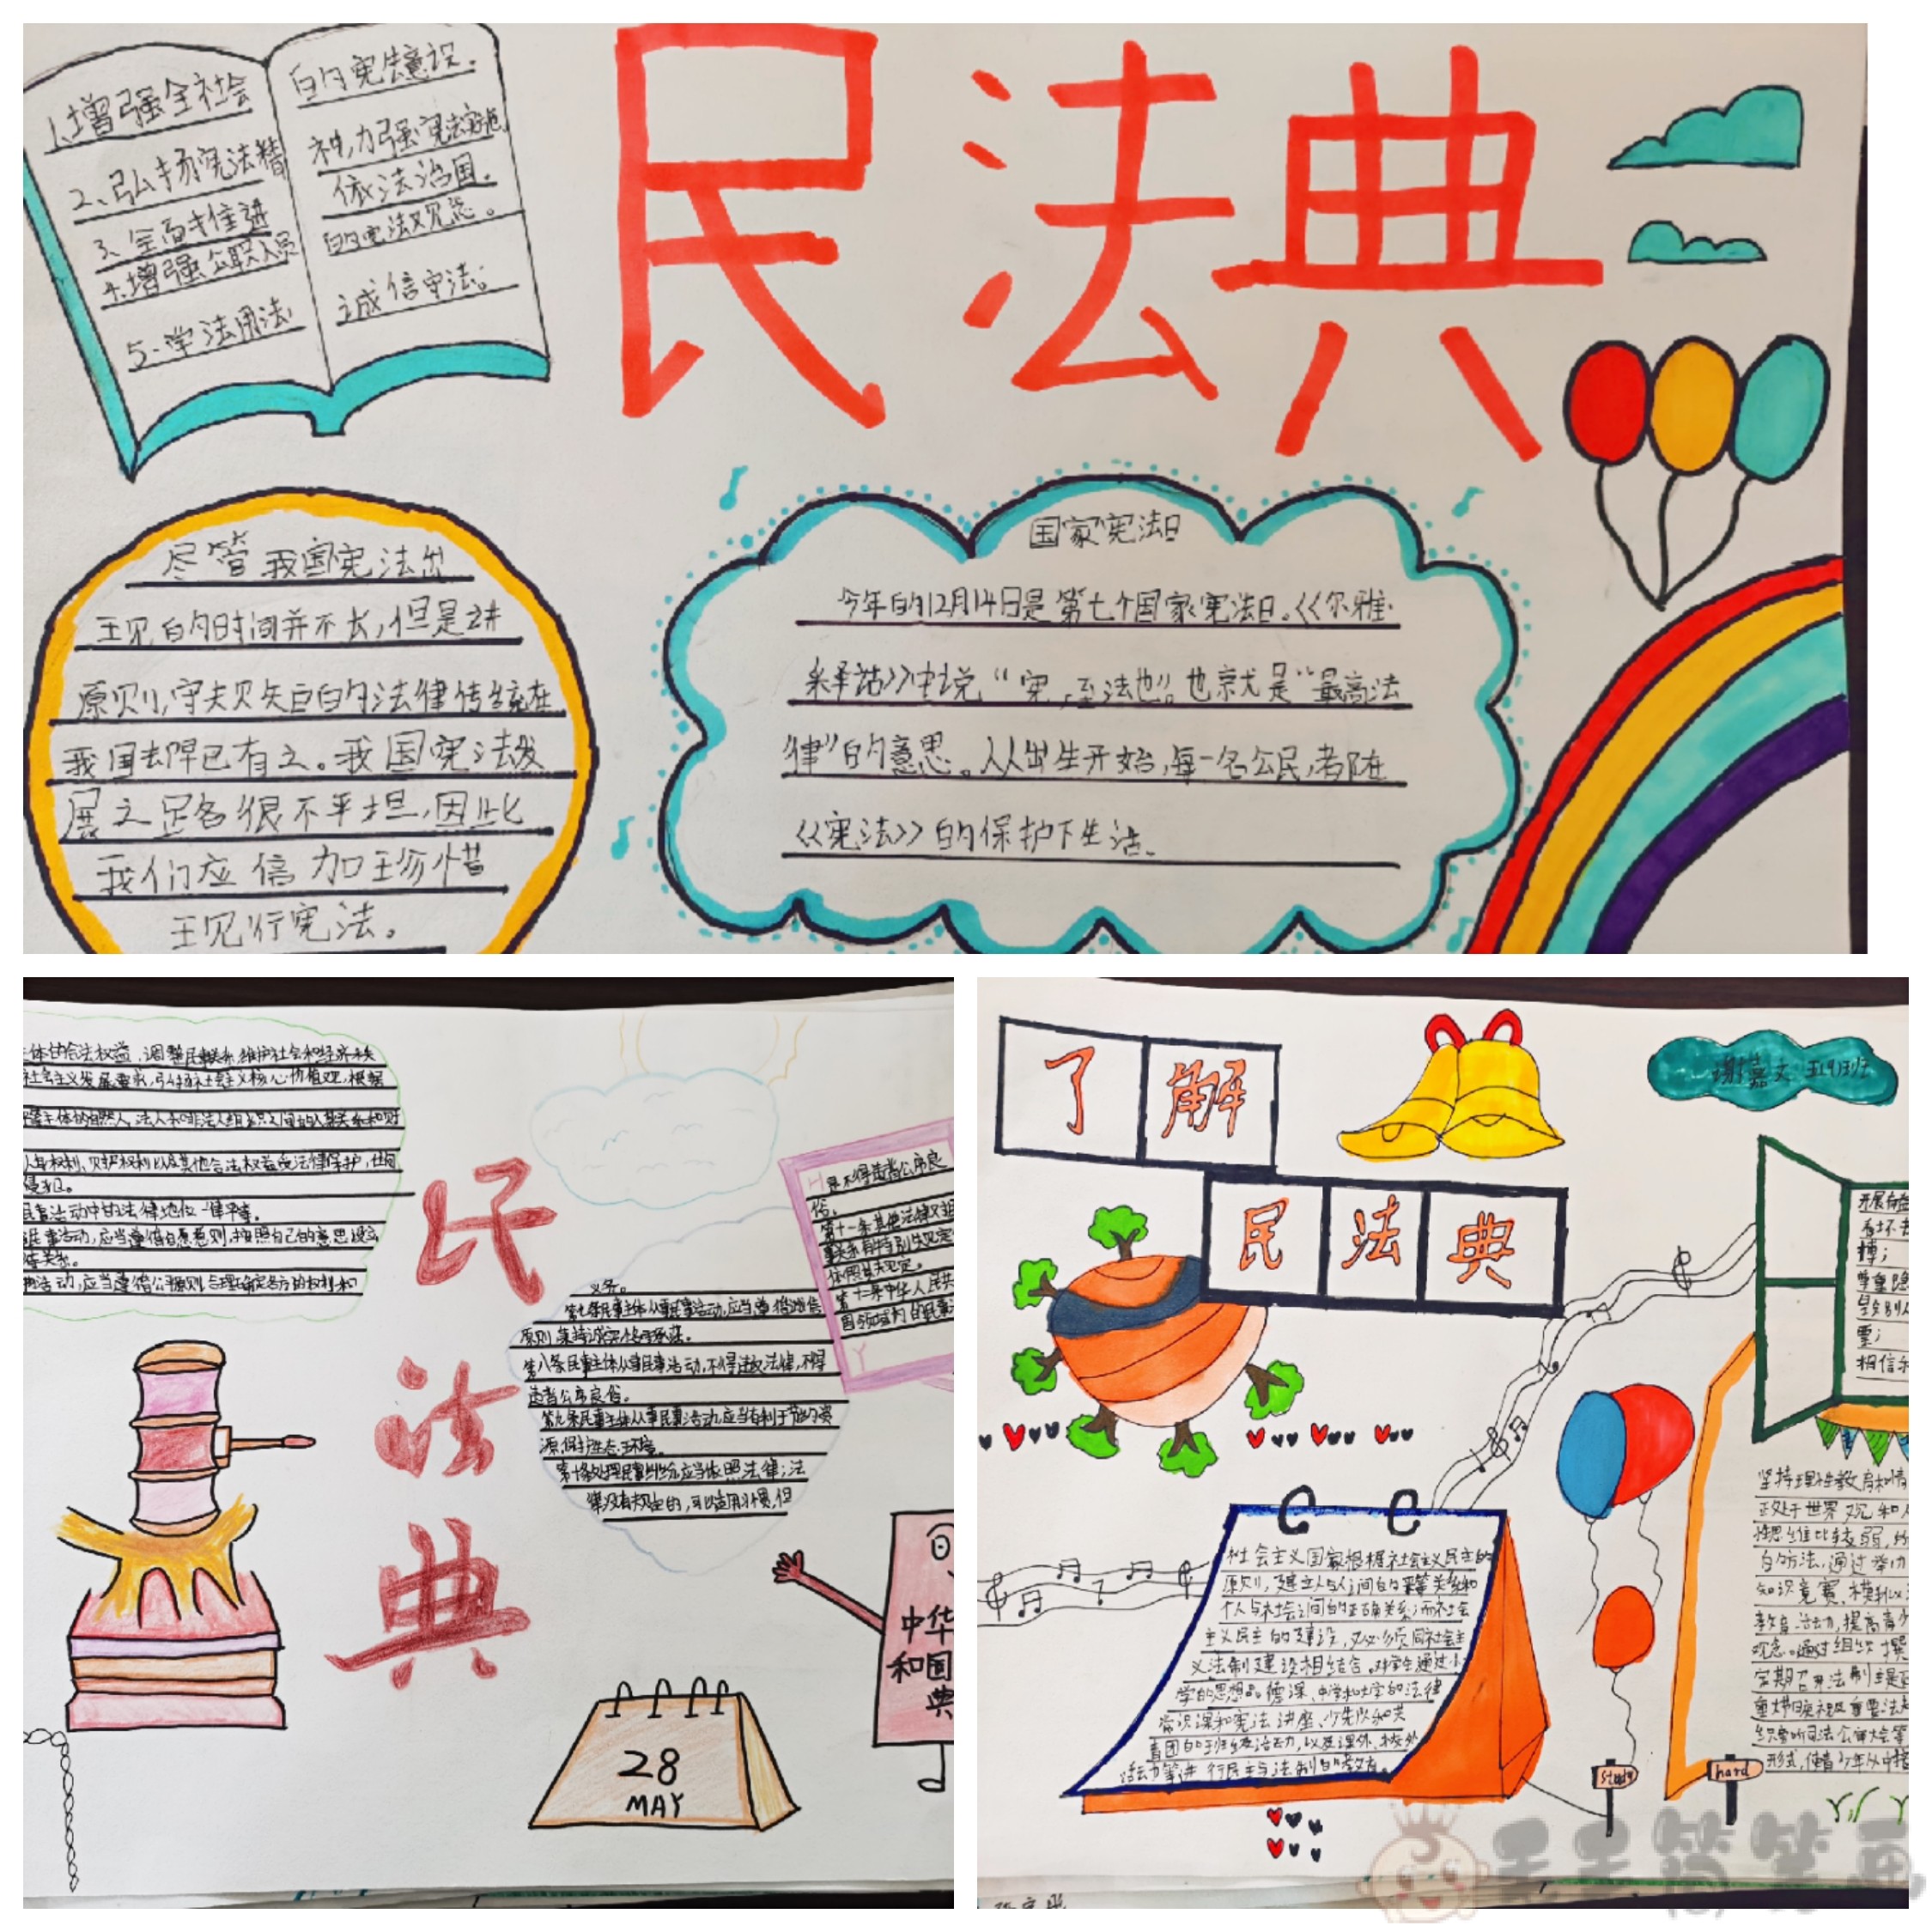 民法典
1、增强全社会 的宪法意识。
2、弘扬宪法精 神,力强宪法实施,
3、全面推进 依法治国。
4、增强公职人员 的宪法观念。
5、学法用法, 诚信守法。
尽管我国宪法出
现的时间并不长,但是讲
原则,守规矩的法律传统在
我国去早已有之。我国宪法发
展之路很不平坦,因此
我们应倍加珍惜
现行宪法。
国家宪法日
今年的12月14日是第七个国家宪法日。《尔雅·
释诂》中说“宪,至法也”。也就是“最高法
律”的意思。从人出生开始,每一名公民,都在
《宪法》的保护下生活。
主体的合法权益,调整民事关系,维护社会和经济秩
社会主义发展要求,弘扬社会主义核心价值观,根据
等主体的自然人、法人和非法人组织之间的人身关系和财
人身权利、财产权利以及其他合法权益受法律保护,任何
侵犯。
民事活动中的法律地位一律平等。
民事活动,应当遵循自愿原则,按照自己的意思设立
律关系。
事活动,应当遵循公平原则,合理确定各方的权利和
民法典
义务。
第七条民事主体从事民事活动,应当遵循诚信
原则,秉持诚实,恪守承诺。
第八条民事主体从事民事活动,不得违反法律,不得
违背公序良俗。
第九条民事主体从事民事活动,应当有利于节约资
源、保护生态环境。
第十条处理民事纠纷,应当依照法律;法
律没有规定的,可以适用习惯,但
是不得违背公序良
俗。
第十一条其他法律对民
事关系有特别规定
依照其规定。
第十二条中华人民共
国领域内的民事
28
MAY
中华
和国
典
了解
民法典
谢嘉文 五(9)班
社会主义国家根据社会主义民主的
原则,建立人与人之间的平等关系和
个人与社会之间的正确关系;而社会
主义民主的建设,又必须同社会主
义法制建设相结合。对学生通过小
学的思想品德课、中学和大学的法律
常识课和宪法讲座、少先队和共
青团的班级活动,以及课外、校外
活动等进行民主与法制的教育。
尊重隐
要;
相信
坚持理性教育和情
正处于世界观和人
性思维比较弱,
的方法,通过举办
知识竞赛、模拟
教育活动,提高青少
观念。通过组织
定期召开法制主题
study
hard
天天简笔画